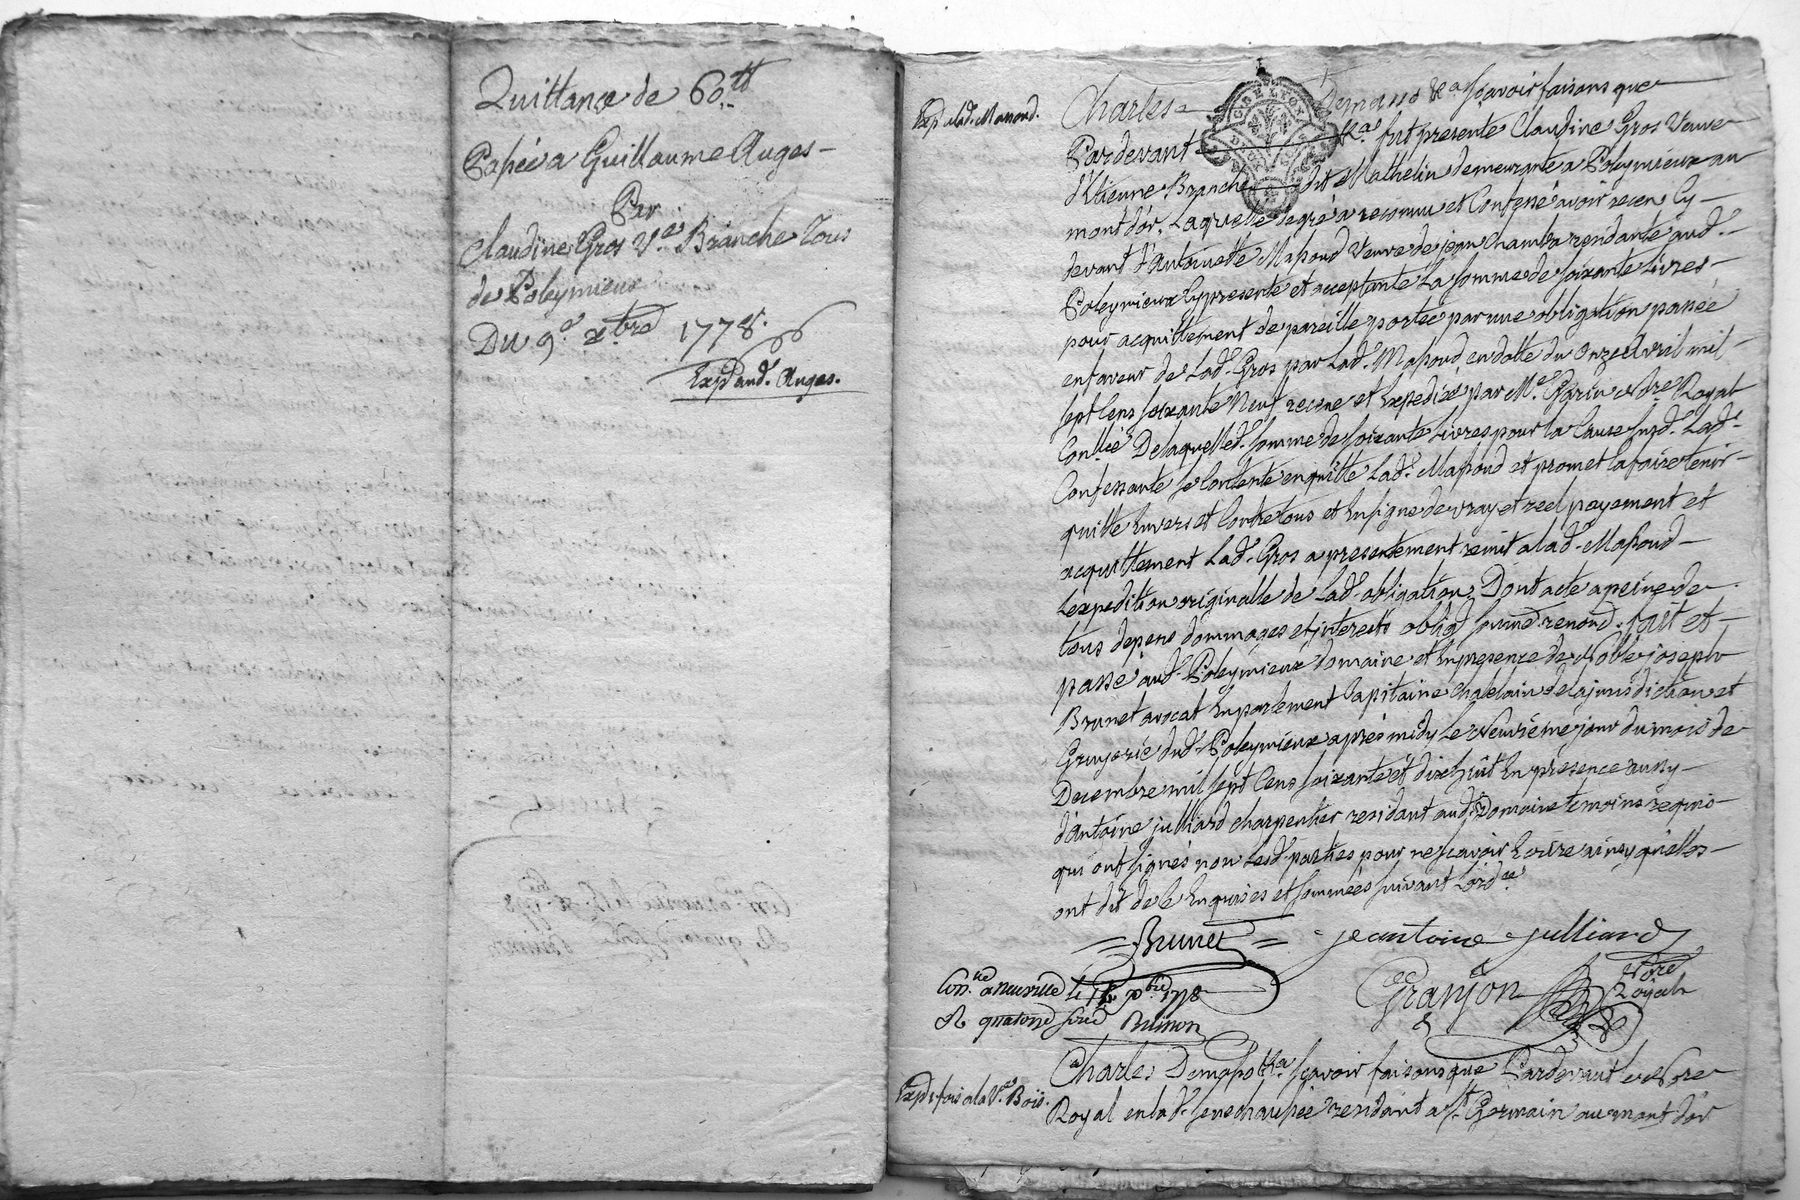 Quittance de 60.tt
Passée a Guillaume Auges
Par
Claudine Gros Ve. Branche Tous
de Poleymieux
Du 9e. xbre 1778.
Expd. aud. Auges.
Expd. alad. Massoud.
Charles Demasso &a. Sçavoir faisons que
Pardevant &a. fut presente Claudine Gros Veuve
d'Etienne Branche dit Mathelin demeurante a Poleymieux au
mont d'or, Laquelle degré a reconnu et Confessé avoir receu Cy
devant d'Antoinette Massoud Veuve de jean Chamba residante aud.
Poleymieux Cy presente et acceptante La somme de soixante Livres
pour acquittement de pareille portée par une obligation passée
en faveur de Lad. Gros par Lad. Massoud en datte du Onze avril mil
sept Cens soixante Neuf receue et Expediée par Me. Garin Nore Royal
Conllée Delaquelle d. somme de soixante Livres pour la Cause susd. Lad.
Confessante se Contente en quitte Lad. Massoud et promet la faire tenir
quitte Envers et Contre tous et En signe de vray et reel payement et
acquittement Lad. Gros a presentement remit a lad. Massoud
L'expedition originalle de Lad. obligation, Dont acte a peine de
tous depens dommages et interests oblig. soumd. renond. fait et
passé aud. Poleymieux domaine et En presence de Noble joseph
Brunet avocat En parlement Capitaine Chatelain de la jurisdiction et
Gruyerie dud. Poleymieux après midy Le Neuvieme jour du mois de
Decembre mil sept Cens soixante et dix huit En presence aussy
d'antoine julliard charpentier residant aud. Domaine temoins requis
qui ont signés non Lesd. parties pour ne sçavoir Ecrire ainsy qu'elles
ont dit de ce Enquises et sommées suivant Lordce
Brunet jeantoine julliard
Granjon Nore
Royal
Conllé a Neuville le xbre 1778
R. quatorze sous
Charles Demasso &a. sçavoir faisons que Pardevant le Nore
Expd. 1 fois a la Ve. Bois.
Royal en lad. senechaussée residant a St. Germain au mont d'or